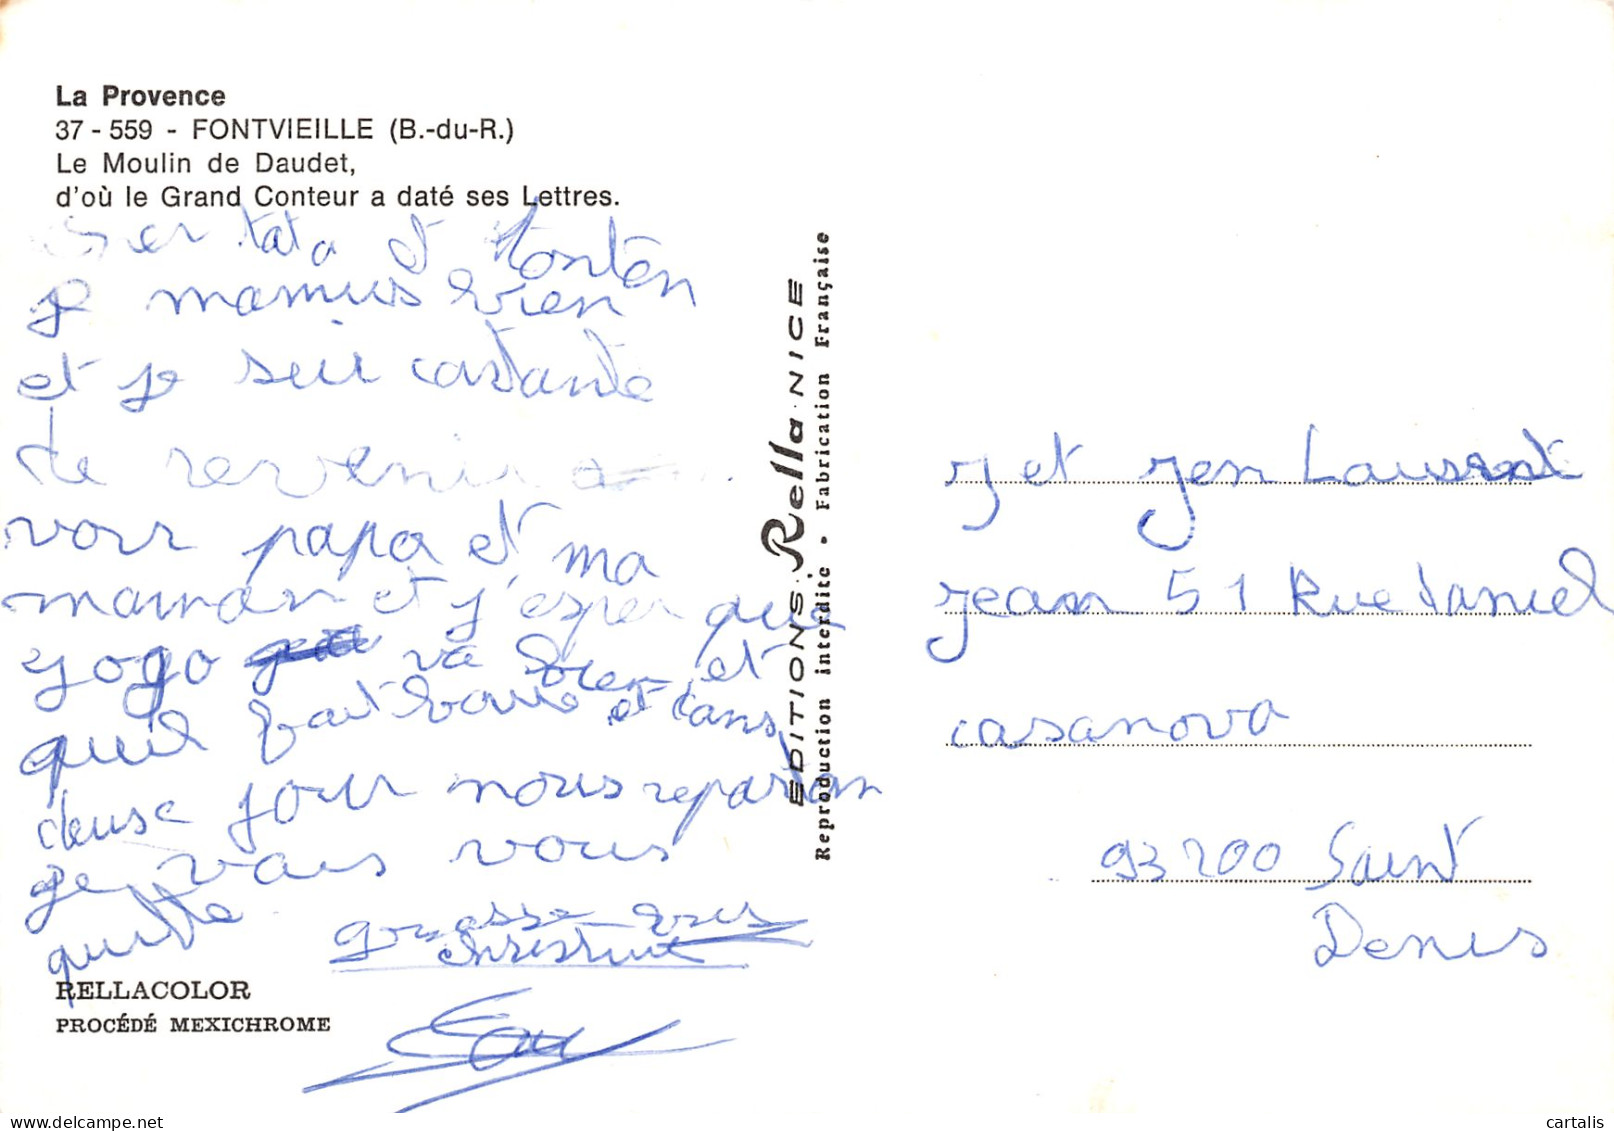 La Provence
37 - 559 - FONTVIEILLE (B.-du-R.)
Le Moulin de Daudet,
d'où le Grand Conteur a daté ses Lettres.
tata et tonton
je mamus bien
et je seui contante
de revenir
voir papa et ma
maman et j'esper que
jojo va bien et
quil fait baue et dans
deuse jour nous repartan
je vais vous
quitte
grosse bises
christine
RELLACOLOR
PROCÉDÉ MEXICHROME
EDITIONS Rella NICE
Reproduction interdite • Fabrication Française
J et Jen Laurent
Jean 51 Rue daniel
casanova
93200 Saint
Denis
cartalis